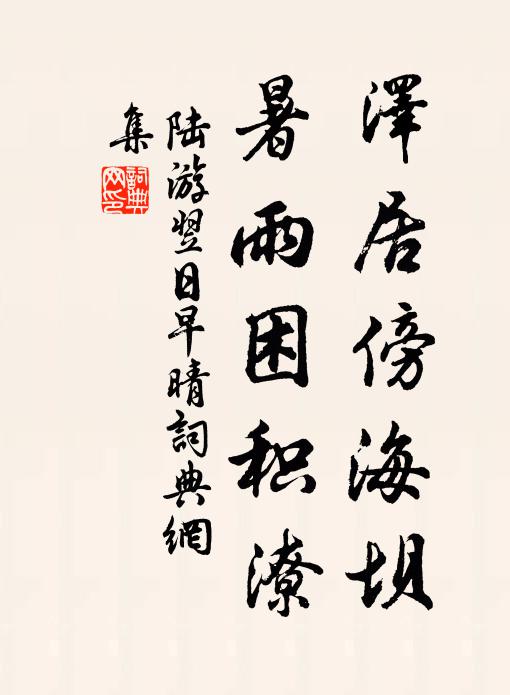 澤居傍海坝
暑雨困积潦
陆游翌日早晴詞典網
集
詞典網